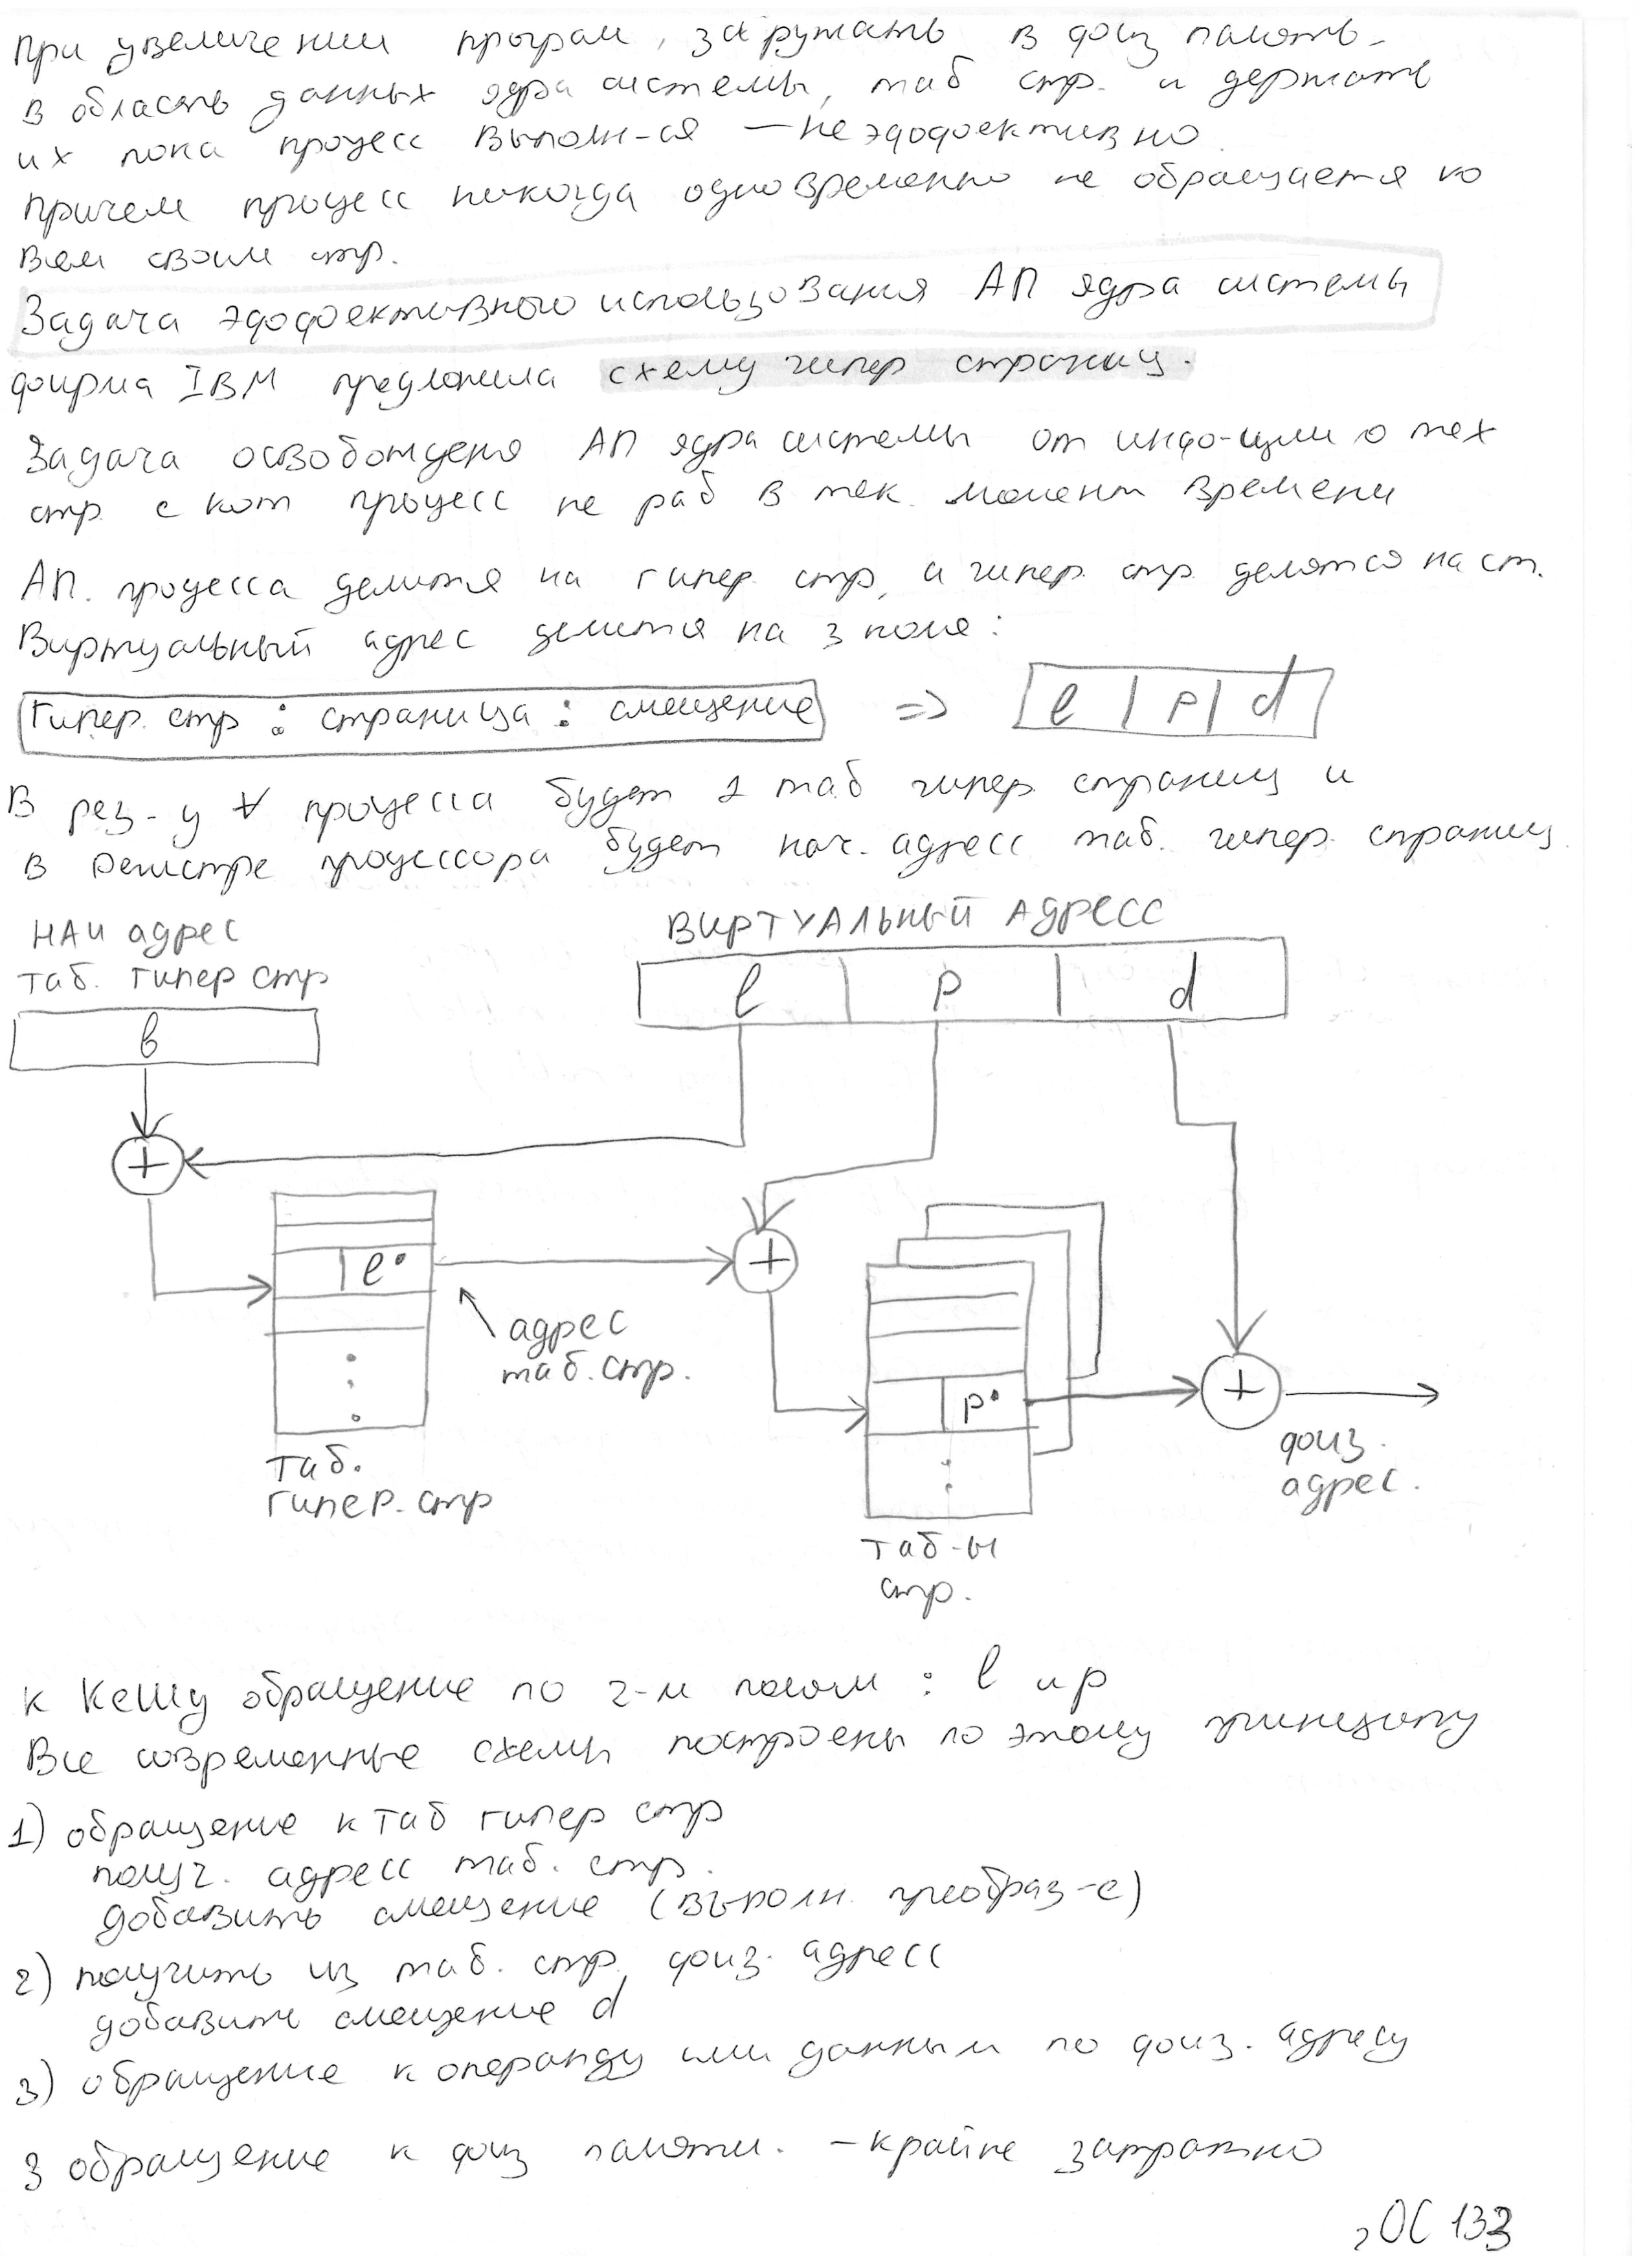 При увеличении програм, загружать в физ память -
в область данных ядра системы, таб стр. и держать
их пока процесс выполн-ся — неэффективно.
Причем процесс никогда одновременно не обращается ко
всем своим стр.
Задача эффективного использования АП ядра системы
фирма IBM предложила схему гипер страниц.
Задача освобождения АП ядра системы от инфо-ции о тех
стр. с кот процесс не раб в тек. момент времени
АП. процесса делится на гипер. стр, а гипер. стр. делятся на ст.
Виртуальный адрес делится на 3 поля:
Гипер. стр : страница : смещение => l | p | d
В рез-у ∀ процесса будет 1 таб гипер. страниц и
в регистре процессора будет нач. адресс таб. гипер. страниц.
НАЧ адрес
таб. гипер стр
ВИРТУАЛЬНЫЙ АДРЕСС
l | p | d
b
+
l°
+
адрес
таб. стр.
p°
+
физ.
адрес.
Таб.
гипер. стр
Таб-ы
стр.
К Кешу обращение по 2-м полям : l и p
Все современные схемы построены по этому принципу
1) обращение к таб гипер стр
получ. адресс таб. стр.
добавить смещение (выполн. преобраз-е)
2) получить из таб. стр. физ. адресс
добавить смещение d
3) обращение к операнду или данным по физ. адресу
3 обращение к физ памяти. - крайне затратно
ОС 133